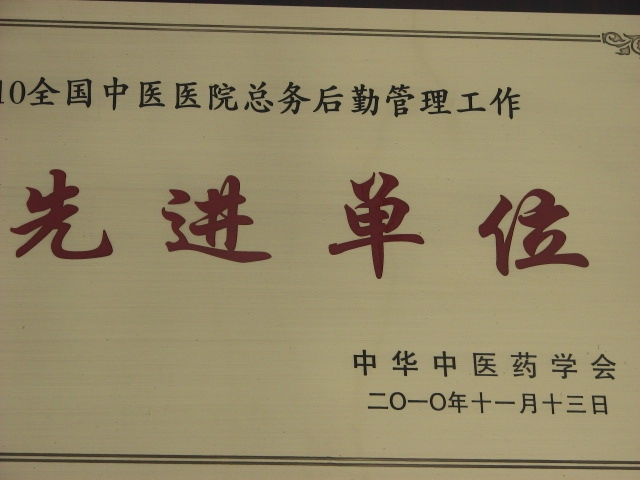 10全国中医医院总务后勤管理工作
先进单位
中华中医药学会
二〇一〇年十一月十三日